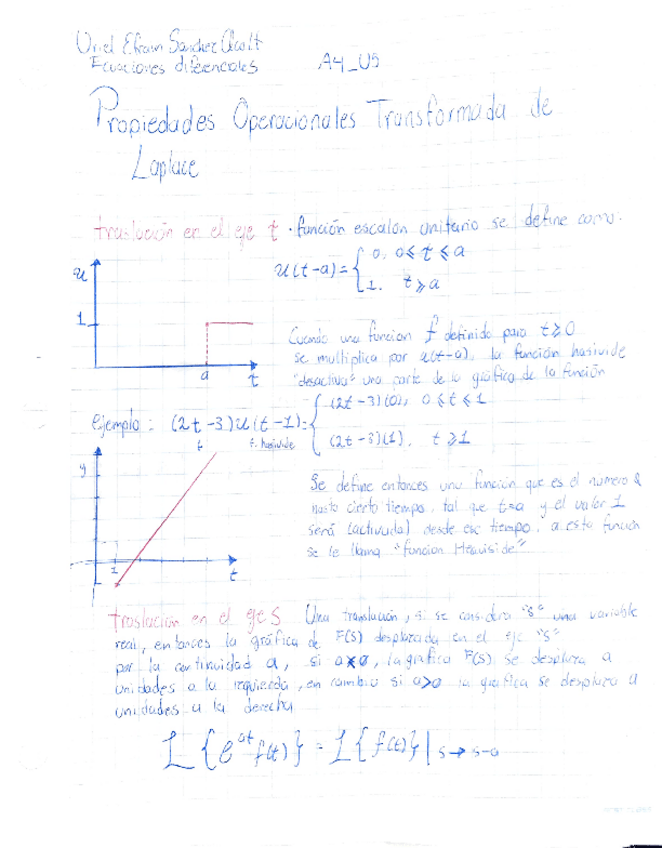 Uriel Efrain Sanchez
Ecuaciones diferenciales A4_U5
Propiedades Operacionales Transformada de
Laplace
traslación en el eje t. función escalón unitario se define como:
u
u(t-a)={ 0, 0≤t≤a
1, t≥a
1
a t
Cuando una función f definido para t≥0
se multiplica por u(t-a), la función
"desactiva" una parte de la gráfica de la función
ejemplo: (2t-3)u(t-1)={ (2t-3)(0), 0≤t≤1
(2t-3)(1), t≥1
y
1 t
Se define entonces una función que es el numero
hasta cierto tiempo, tal que t=a y el valor 1
será (activada) desde ese tiempo, a esta función
se le llama "funcion Heaviside"
traslación en el eje s Una translación, si se considera "s" una variable
real, entonces la gráfica de F(s) desplazada en el eje "s"
por la continuidad a, si la grafica F(s) se desplaza a
unidades a la izquierda, en cambio si a>0 la grafica se desplaza a
unidades a la derecha
L{e^at f(t)} = L{f(t)}|s→s-a